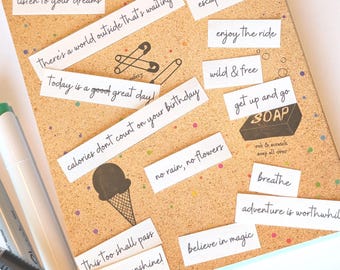 listen to your dreams
escape
there's a world outside that's waiting
enjoy the ride
today is a good great day!
wild & free
get up and go
calories don't count on your birthday
SOAP
no rain, no flowers
breathe
adventure is worthwhile
this too shall pass
believe in magic
sunshine!